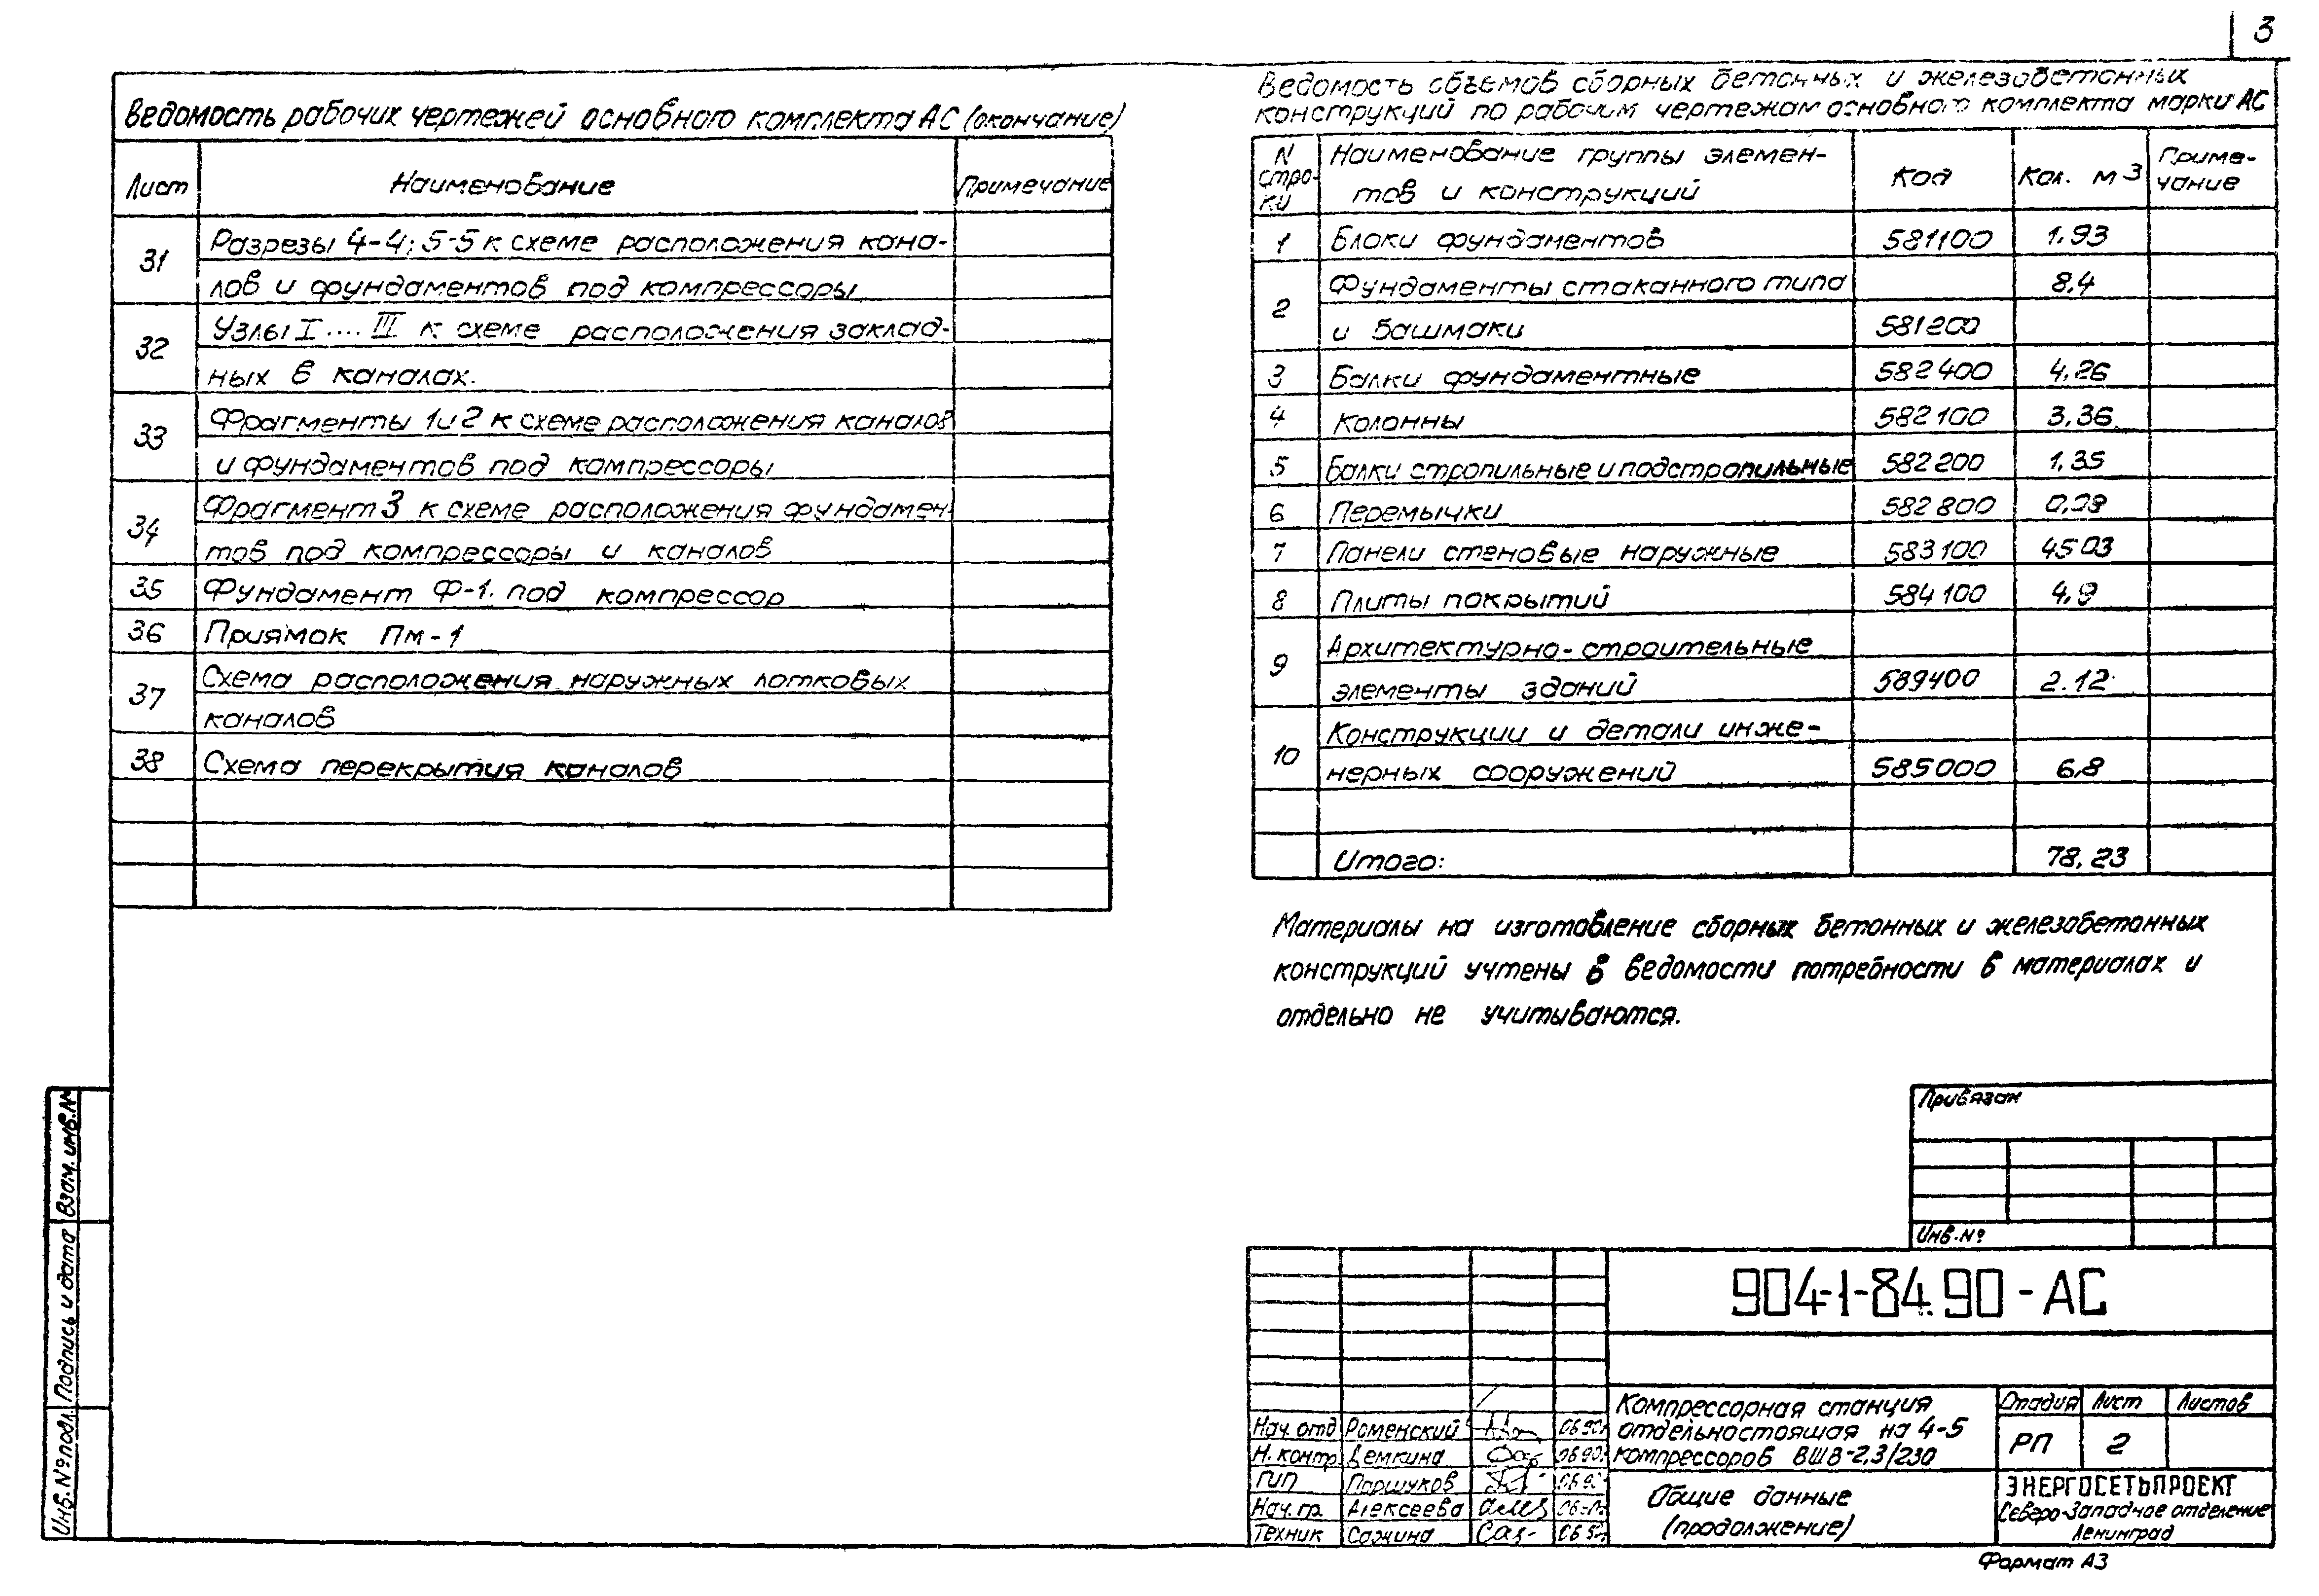 3
Ведомость рабочих чертежей основного комплекта АС (окончание)
Лист Наименование Примечание
31 Разрезы 4-4; 5-5 к схеме расположения кана-
лов и фундаментов под компрессоры
32 Узлы I .... III к схеме расположения заклад-
ных в каналах.
33 Фрагменты 1 и 2 к схеме расположения каналов
и фундаментов под компрессоры
34 Фрагмент 3 к схеме расположения фундамен-
тов под компрессоры и каналов
35 Фундамент Ф-1. под компрессор
36 Приямок Пм-1
37 Схема расположения наружных лотковых
каналов
38 Схема перекрытия каналов
Ведомость объемов сборных бетонных и железобетонных
конструкций по рабочим чертежам основного комплекта марки АС
N стро-ки Наименование группы элемен-тов и конструкций Код Кол. м3 Приме-чание
1 Блоки фундаментов 581100 1,93
2 Фундаменты стаканного типа 8,4
и башмаки 581200
3 Балки фундаментные 582400 4,26
4 Колонны 582100 3,36
5 Балки стропильные и подстропильные 582200 1,35
6 Перемычки 582800
7 Панели стеновые наружные 583100 45 03
8 Плиты покрытий 584100 4,9
9 Архитектурно-строительные
элементы зданий 589400 2.12
10 Конструкции и детали инже-
нерных сооружений 585000 6,8
Итого: 78,23
Материалы на изготовление сборных бетонных и железобетонных
конструкций учтены в ведомости потребности в материалах и
отдельно не учитываются.
Привязан
Инв.№
904-1-84.90-АС
Нач. отд Роменский 06.90
Н. контр. Демкина 06.90
ГИП Паршуков
Нач. гр. Алексеева
Техник Сажина
Компрессорная станция
отдельностоящая на 4-5
компрессоров ВШВ-2,3/230
Стадия Лист Листов
РП 2
Общие данные
(продолжение)
ЭНЕРГОСЕТЬПРОЕКТ
Северо-Западное отделение
Ленинград
Формат А3
Взам. инв.№
Подпись и дата
Инв. № подл.